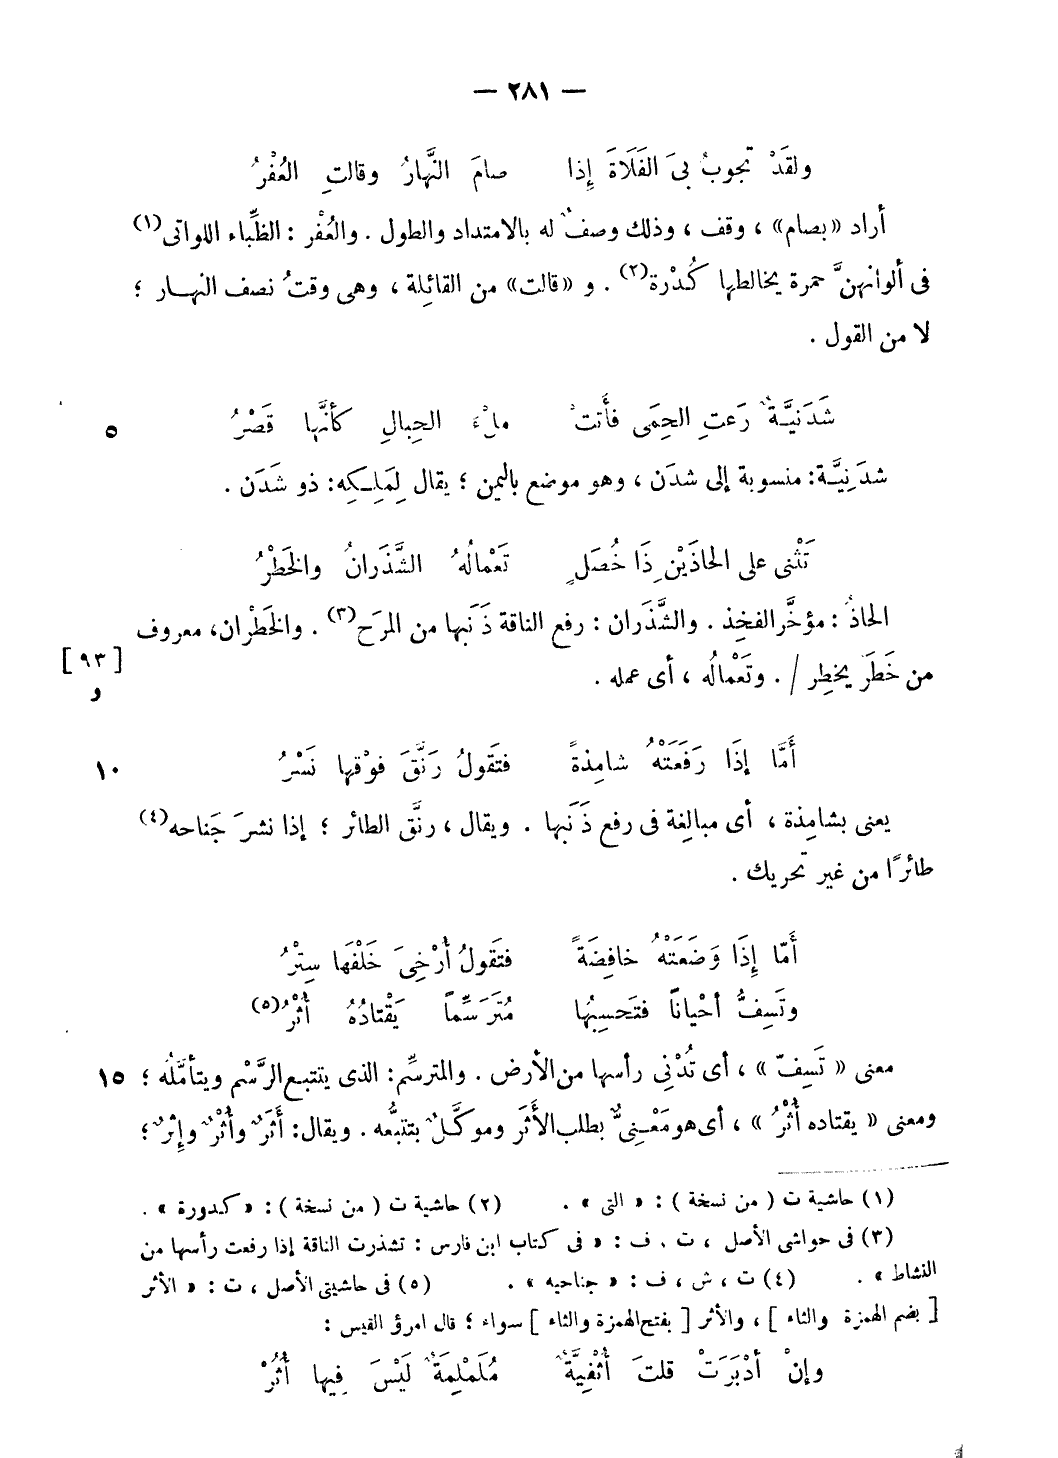 — ٢٨١ —
ولقَدْ تجوبُ بىَ الفَلَاةَ إِذا صامَ النَّهارُ وقالتِ العُفْرُ
أراد «بصام» ، وقف ، وذلك وصفٌ له بالامتداد والطول . والعُفْر : الظِّباء اللواتى(١)
فى ألوانهنَّ حمرة يخالطها كُدْرة(٢) . و «قالت» من القائِلة ، وهى وقتُ نصف النهار ؛
لا من القول .
شَدَنيَّةٌ رَعتِ الحِمَى فأَتتْ ملْءَ الحِبالِ كأنَّها قَصْرُ
٥
شدَنِيَّة : منسوبة إلى شدَن ، وهو موضع باليمن ؛ يقال لِمَلِكِه : ذو شَدَن .
تَثْنى على الحاذَيْنِ ذَا خُصَلٍ تَعْمالُهُ الشَّذَرانُ والخَطْرُ
الحاذُ : مؤخَّر الفخِذ . والشَّذَران : رفع الناقة ذَنَبها من المرَح(٣) . والخَطْران ، معروف
من خَطَرَ يخطِر / . وتَعْمالُه ، أى عمله .
[ ٩٣ ]
و
أَمَّا إِذَا رَفَعَتْهُ شامِذةً فتَقولُ رَنَّقَ فوْقها نَسْرُ
١٠
يعنى بشامِذة ، أى مبالِغة فى رفع ذَنَبها . ويقال ، رنَّق الطائر ؛ إذا نشرَ جَناحه(٤)
طائرًا من غير تحريك .
أَمّا إِذَا وَضَعَتْهُ خافِضَةً فتَقولُ أُرْخِىَ خَلْفَها سِتْرُ
وتَسِفُّ أحْياناً فتَحسِبُها مُتَرَسِّماً يَقْتادُهُ أُثْرُ(٥)
معنى « تَسِفّ » ، أى تُدْنِى رأسها من الأرض . والمترسِّم : الذى يتتبع الرَّسْم ويتأمَّلُه ؛
١٥
ومعنى « يقتاده أُثْرُ » ، أى هو مَعْنِىٌّ بطلب الأَثَر وموكَّلٌ بتتبُّعه . ويقال : أَثَرٌ وأُثْرٌ وإِثْرٌ ؛
(١) حاشية ت ( من نسخة ) : « التى » . (٢) حاشية ت ( من نسخة ) : « كدورة » .
(٣) فى حواشى الأصل ، ت ، ف : « فى كتاب ابن فارس : تشذرت الناقة إذا رفعت رأسها من
النشاط » . (٤) ت ، ش ، ف : « جناحيه » . (٥) فى حاشيتى الأصل ، ت : « الأثر
[ بضم الهمزة والثاء ] ، والأثر [ بفتح الهمزة والثاء ] سواء ؛ قال امرؤ القيس :
وإنْ أدْبَرَتْ قلتَ أُثْفِيَّةٌ مُلَمْلِمَةٌ لَيْسَ فِيها أُثُرْ